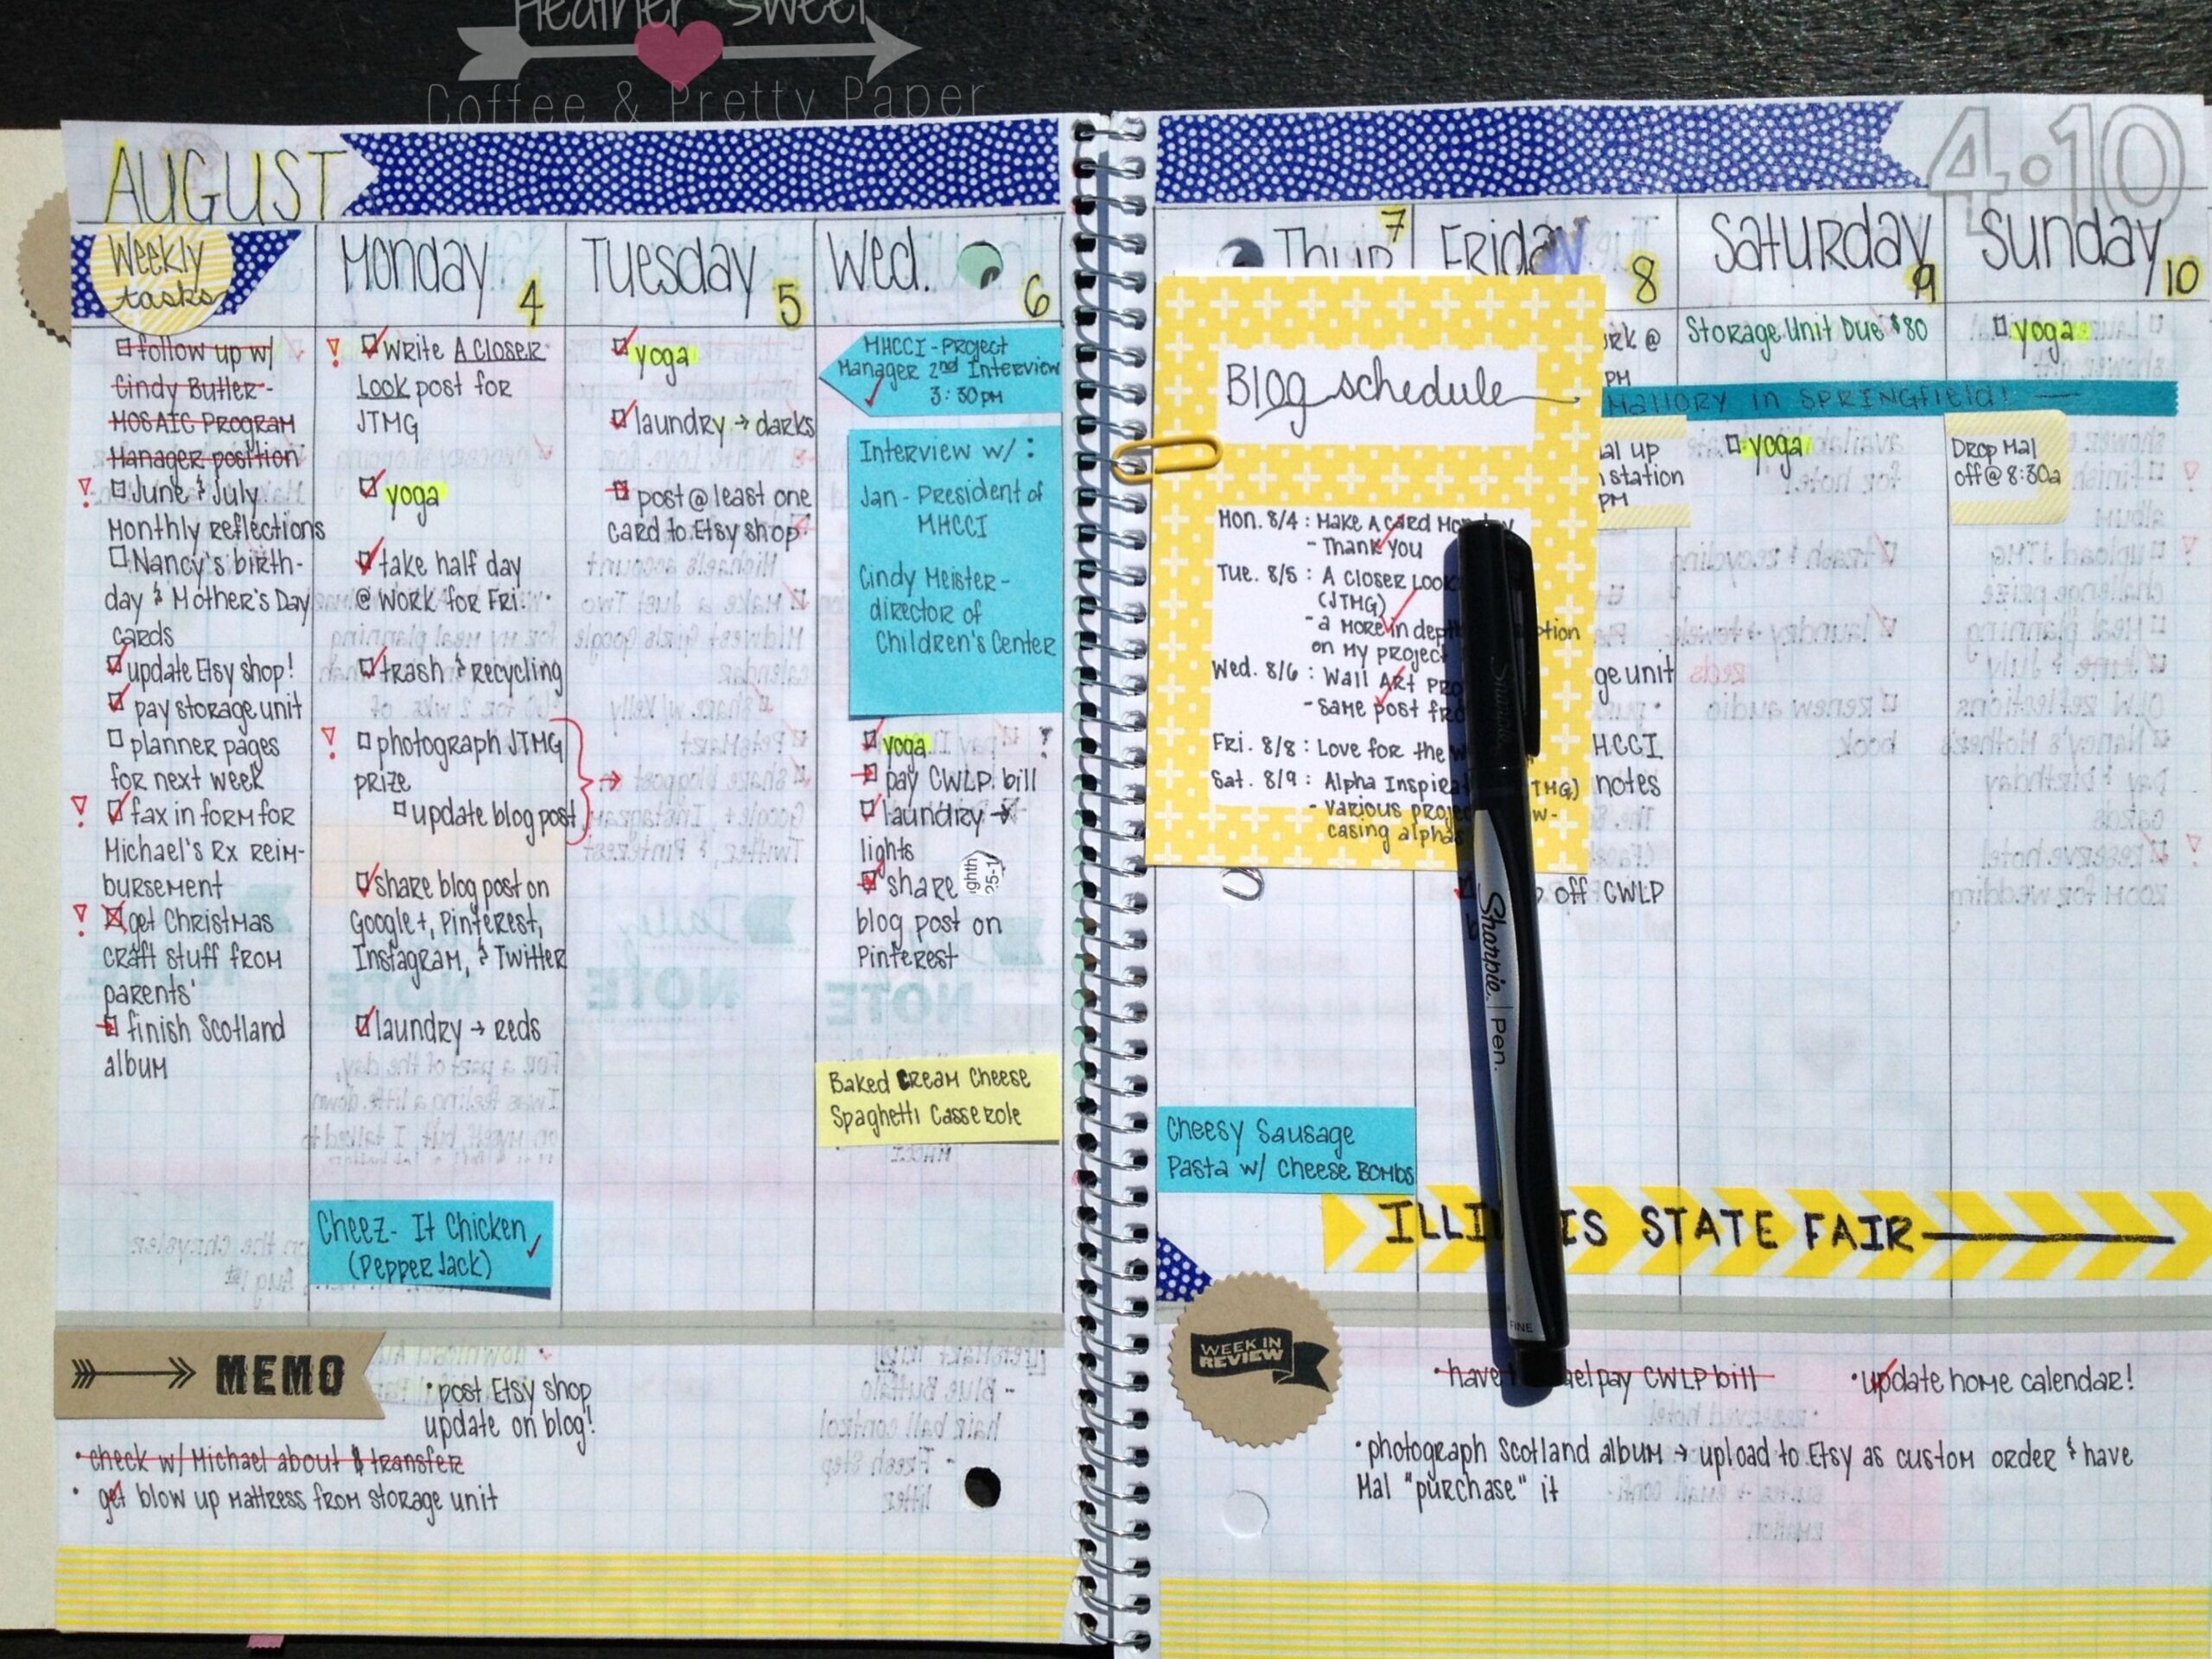 Heather Sweet
Coffee & Pretty Paper
AUGUST
4.10
Weekly
tasks
follow up w/
Cindy Butler -
MOSAIC Program
Manager position
! June & July
Monthly reflections
Nancy's birth-
day & Mother's Day
cards
update Etsy shop!
pay storage unit
planner pages
for next week
! fax in form for
Michael's Rx reim-
bursement
! get Christmas
craft stuff from
parents'
finish Scotland
album
Monday 4
! Write A Closer
Look post for
JTMG
yoga
take half day
@ work for Fri.
trash & recycling
! photograph JTMG
prize
update blog post
share blog post on
Google+, Pinterest,
Instagram, & Twitter
laundry → reds
Cheez-It Chicken
(Pepper Jack)
Tuesday 5
yoga
laundry → darks
post @ least one
card to Etsy shop
Wed. 6
MHCCI - Project
Manager 2nd Interview
3:30pm
Interview w/ :
Jan - President of
MHCCI
Cindy Meister -
director of
Children's Center
yoga
pay CWLP bill
laundry →
lights
share
blog post on
Pinterest
Baked Cream Cheese
Spaghetti Casserole
Thur 7
Blog schedule
Mon. 8/4 : Make A Card
- Thank You
Tue. 8/5 : A Closer Look
(JTMG)
- a more in
on my project
Wed. 8/6 : Wall Art
- same post
Fri. 8/8 : Love for the
Sat. 8/9 : Alpha
TMG)
- various
casing alphas
Cheesy Sausage
Pasta w/ Cheese Bombs
Friday 8
@
PM
up
station
PM
unit
notes
off CWLP
Saturday 9
Storage Unit Due $80
Mallory in Springfield!
yoga
Sunday 10
yoga
Drop Mal
off @ 8:30a
STATE FAIR
MEMO
• post Etsy shop
update on blog!
• check w/ Michael about $ transfer
• get blow up mattress from storage unit
WEEK IN
REVIEW
• have pay CWLP bill
• update home calendar!
• photograph Scotland album → upload to Etsy as custom order & have
Mal "purchase" it
Sharpie. Pen.
FINE